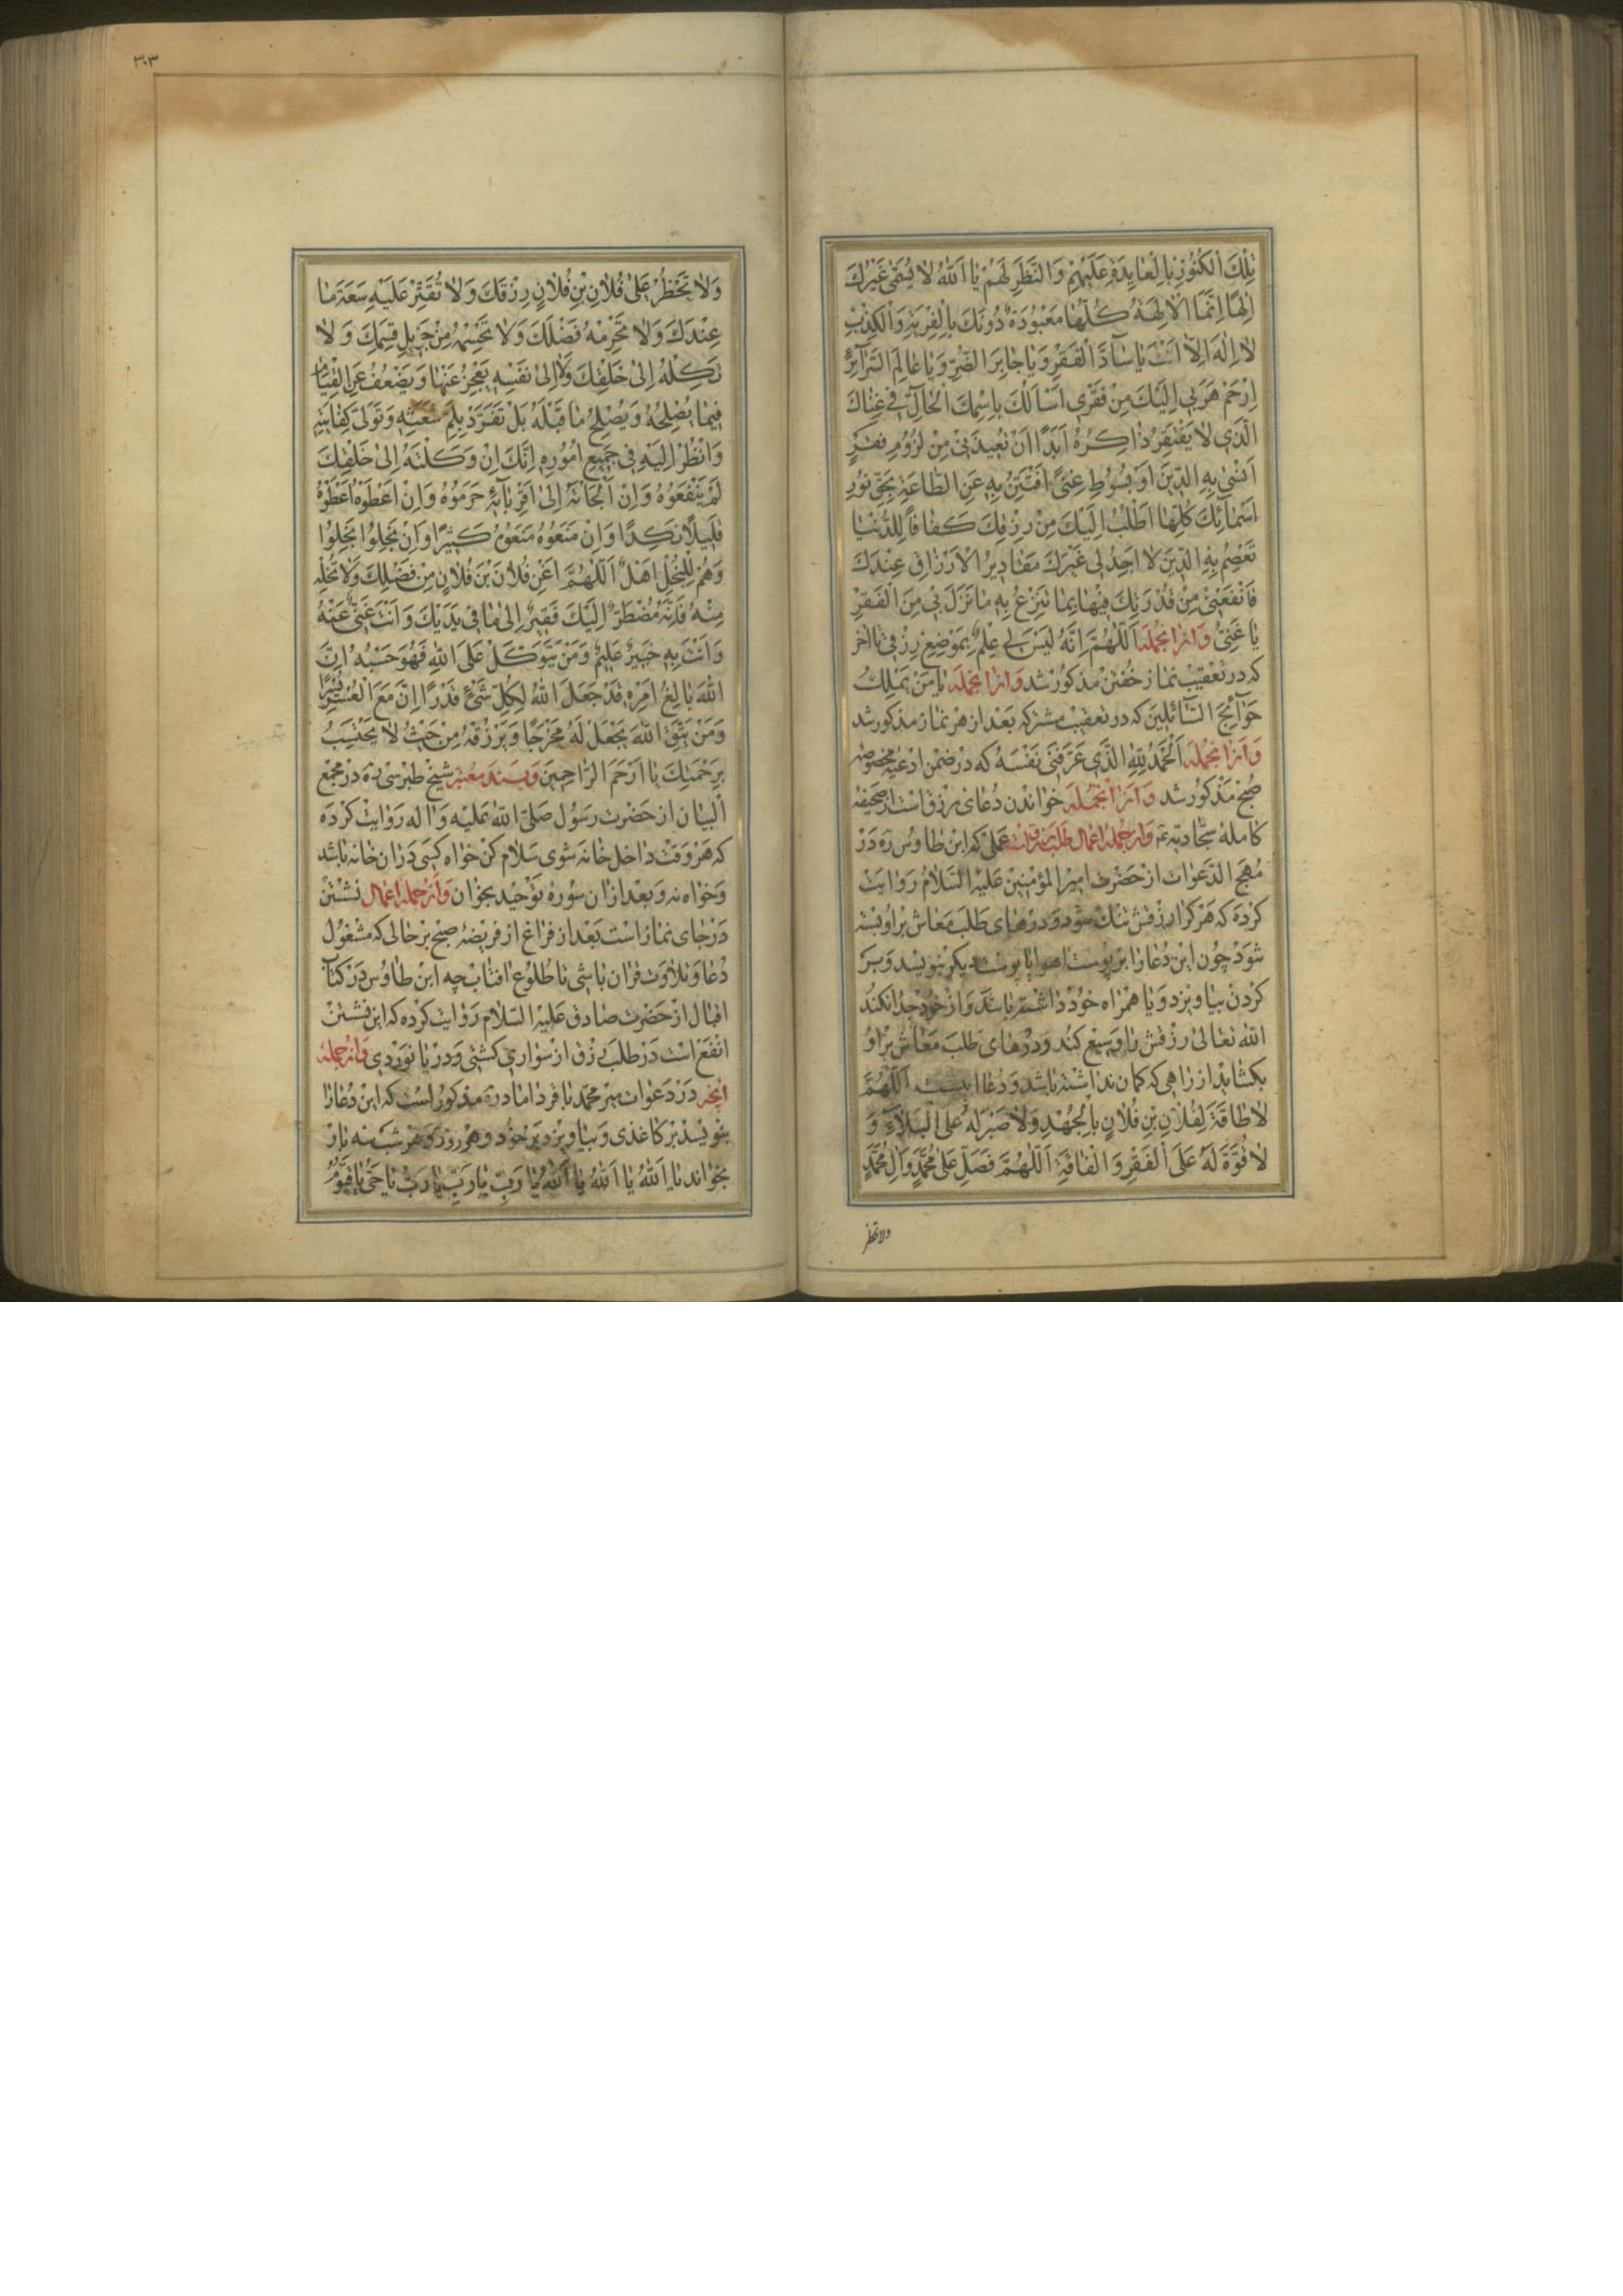 تِلْكَ الْكُنُوزِ بِالْعٰايِدَةِ عَلَيْهِمْ وَالنَّظَرِ لَهُمْ يٰا اَللّٰهُ لاٰ يُسَمّىٰ غَيْرُكَ
اِلٰهًا اِنَّمَا الْاٰلِهَةُ كُلُّهٰا مَعْبُودَةٌ دُونَكَ بِالْفِرْيَةِ وَالْكِذْبِ
لاٰ اِلٰهَ اِلاّٰ اَنْتَ يٰا سٰادَّ الْفَقْرِ وَيٰا جٰابِرَ الضُّرِّ وَيٰا عٰالِمَ السَّرٰآئِرِ
اِرْحَمْ هَرَبِي اِلَيْكَ مِنْ فَقْرِي اَسْأَلُكَ بِاسْمِكَ الْحٰالِّ فِي غِنٰاكَ
الَّذِي لاٰ يَفْتَقِرُ ذٰاكِرُهُ اَبَدًا اَنْ تُعِيذَنِي مِنْ لُزُومِ فَقْرٍ
اَنْسٰى بِهِ الدِّينَ اَوْ بُسُوطِ غِنىً اَفْتَتِنُ بِهِ عَنِ الطّٰاعَةِ بِحَقِّ نُورِ
اَسْمٰائِكَ كُلِّهٰا اَطْلُبُ اِلَيْكَ مِنْ رِزْقِكَ كَفٰافًا لِلدُّنْيٰا
تَعْصِمُ بِهِ الدِّينَ لاٰ اَجِدُ لِي غَيْرَكَ مَقٰادِيرُ الْاَرْزٰاقِ عِنْدَكَ
فَانْفَعْنِي مِنْ قُدْرَتِكَ فِيهٰا بِمٰا تَنْزِعُ بِهِ مٰا نَزَلَ بِي مِنَ الْفَقْرِ
يٰا غَنِيُّ وَازانجمله اَللّٰهُمَّ اِنَّهُ لَيْسَ لِي عِلْمٌ بِمَوْضِعِ رِزْقِي تا اٰخر
که در تعقیب نماز خفتن مذکور شد وازانجمله يٰا مَنْ يَمْلِكُ
حَوٰآئِجَ السّٰآئِلِينَ که در تعقیب مشترکه بعد از هر نماز مذکور شد
وازانجمله اَلْحَمْدُ لِلّٰهِ الَّذِي عَرَّفَنِي نَفْسَهُ که در ضمن ادعیه مخصوصه
صبح مذکور شد وازانجمله خواندن دعای رزق است از صحیفه
کامله سجّادیه وازجمله اعمال طلب رزق است عملی که ابن طاوس ره در
مُهَج الدعوات از حضرت امیر المؤمنین علیه السلام روایت
کرده که هر که را رزقش تنك شود و درهای طلب معاش بر او بسته
شود چون این دعا را بر پوست اهو یا پوست دیکر بنویسد و بر
کردن بیاویزد و یا همراه خود داشته باشد و از خود جدا نکند
الله تعالی رزقش را وسیع کند و درهای طلب معاش بر او
بکشاید از راهی که کمان نداشته باشد و دعا اینست اَللّٰهُمَّ
لاٰ طٰاقَةَ لِفُلاٰنِ بْنِ فُلاٰنٍ بِالْجُهْدِ وَلاٰ صَبْرَ لَهُ عَلَى الْبَلاٰءِ وَ
لاٰ قُوَّةَ لَهُ عَلَى الْفَقْرِ وَالْفٰاقَةِ اَللّٰهُمَّ فَصَلِّ عَلىٰ مُحَمَّدٍ وَاٰلِ مُحَمَّدٍ
ولا تحظر
۳۰۳
وَلاٰ تَحْظُرْ عَلىٰ فُلاٰنِ بْنِ فُلاٰنٍ رِزْقَكَ وَلاٰ تُقَتِّرْ عَلَيْهِ سَعَةَ مٰا
عِنْدَكَ وَلاٰ تَحْرِمْهُ فَضْلَكَ وَلاٰ تَحْسِمْهُ مِنْ جَزِيلِ قِسَمِكَ وَلاٰ
تَكِلْهُ اِلىٰ خَلْقِكَ وَلاٰ اِلىٰ نَفْسِهِ يَعْجِزُ عَنْهٰا وَيَضْعُفُ عَنِ الْقِيٰامِ
فِيمٰا يُصْلِحُهُ وَيُصْلِحُ مٰا قِبَلَهُ بَلْ تَفَرَّدْ بِلَمِّ شَعَثِهِ وَتَوَلَّ كِفٰايَتِهِ
وَانْظُرْ اِلَيْهِ فِي جَمِيعِ اُمُورِهِ اِنَّكَ اِنْ وَكَلْتَهُ اِلىٰ خَلْقِكَ
لَمْ يَنْفَعُوهُ وَاِنْ اَلْجَأْتَهُ اِلىٰ اَقْرِبٰآئِهِ حَرَمُوهُ وَاِنْ اَعْطَوْهُ اَعْطَوْهُ
قَلِيلًا نَكِدًا وَاِنْ مَنَعُوهُ مَنَعُوهُ كَثِيرًا وَاِنْ بَخِلُوا بَخِلُوا
وَهُمْ لِلْبُخْلِ اَهْلٌ اَللّٰهُمَّ اَغْنِ فُلاٰنَ بْنَ فُلاٰنٍ مِنْ فَضْلِكَ وَلاٰ تُخْلِهِ
مِنْهُ فَاِنَّهُ مُضْطَرٌّ اِلَيْكَ فَقِيرٌ اِلىٰ مٰا فِي يَدَيْكَ وَاَنْتَ غَنِيٌّ عَنْهُ
وَاَنْتَ بِهِ خَبِيرٌ عَلِيمٌ وَمَنْ يَتَوَكَّلْ عَلَى اللّٰهِ فَهُوَ حَسْبُهُ اِنَّ
اللّٰهَ بٰالِغُ اَمْرِهِ قَدْ جَعَلَ اللّٰهُ لِكُلِّ شَيْءٍ قَدْرًا اِنَّ مَعَ الْعُسْرِ يُسْرًا
وَمَنْ يَتَّقِ اللّٰهَ يَجْعَلْ لَهُ مَخْرَجًا وَيَرْزُقْهُ مِنْ حَيْثُ لاٰ يَحْتَسِبُ
بِرَحْمَتِكَ يٰا اَرْحَمَ الرّٰاحِمِينَ وبسند معتبر شیخ طبرسی ره در مجمع
البیان از حضرت رسول صلی الله علیه واله روایت کرده
که هر وقت داخل خانه شوی سلام کن خواه کسی در ان خانه باشد
وخواه نه وبعد از ان سوره توحید بخوان وازجمله اعمال نشستن
در جای نماز است بعد از فراغ از فریضه صبح بر حالی که مشغول
دعا وتلاوت قران باشی تا طلوع افتاب چه ابن طاوس در کتاب
اقبال از حضرت صادق علیه السلام روایت کرده که این نشستن
انفع است در طلب رزق از سواری کشتی ودریا نوردی وازجمله
انچه در دعوات میر محمد باقر داماد ره مذکور است که این دعا را
بنویسد بر کاغذی وبیاویزد بر خود وهر روز وهر شب سه بار
بخواند يٰا اَللّٰهُ يٰا اَللّٰهُ يٰا اَللّٰهُ يٰا رَبِّ يٰا رَبِّ يٰا رَبِّ يٰا حَيُّ يٰا قَيُّومُ